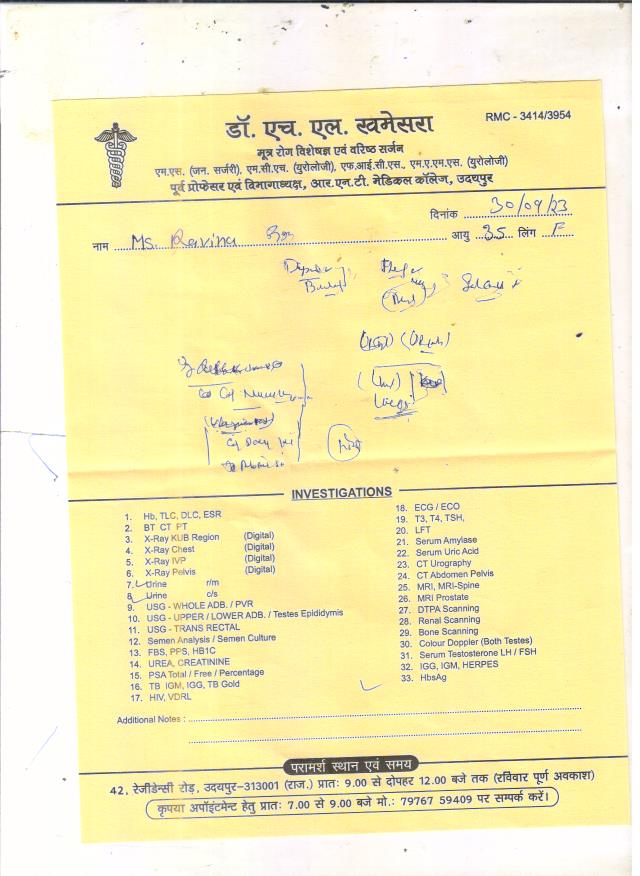 RMC - 3414/3954
डॉ. एच. एल. खमेसरा
मूत्र रोग विशेषज्ञ एवं वरिष्ठ सर्जन
एम.एस. (जन. सर्जरी), एम.सी.एच. (युरोलोजी), एफ.आई.सी.एस., एम.ए.एम.एस. (युरोलोजी)
पूर्व प्रोफेसर एवं विभागाध्यक्ष, आर.एन.टी. मेडिकल कॉलेज, उदयपुर
दिनांक 30/09/23
नाम Ms. Ravina आयु 35 लिंग F
INVESTIGATIONS
1. Hb, TLC, DLC, ESR
2. BT CT PT
3. X-Ray KUB Region (Digital)
4. X-Ray Chest (Digital)
5. X-Ray IVP (Digital)
6. X-Ray Pelvis (Digital)
7. Urine r/m
8. Urine c/s
9. USG - WHOLE ADB. / PVR
10. USG - UPPER / LOWER ADB. / Testes Epididymis
11. USG - TRANS RECTAL
12. Semen Analysis / Semen Culture
13. FBS, PPS, HB1C
14. UREA, CREATININE
15. PSA Total / Free / Percentage
16. TB IGM, IGG, TB Gold
17. HIV, VDRL
18. ECG / ECO
19. T3, T4, TSH,
20. LFT
21. Serum Amylase
22. Serum Uric Acid
23. CT Urography
24. CT Abdomen Pelvis
25. MRI, MRI-Spine
26. MRI Prostate
27. DTPA Scanning
28. Renal Scanning
29. Bone Scanning
30. Colour Doppler (Both Testes)
31. Serum Testosterone LH / FSH
32. IGG, IGM, HERPES
33. HbsAg
Additional Notes :
परामर्श स्थान एवं समय
42, रेजीडेन्सी रोड़, उदयपुर–313001 (राज.) प्रातः 9.00 से दोपहर 12.00 बजे तक (रविवार पूर्ण अवकाश)
कृपया अपॉइंटमेन्ट हेतु प्रातः 7.00 से 9.00 बजे मो.: 79767 59409 पर सम्पर्क करें।